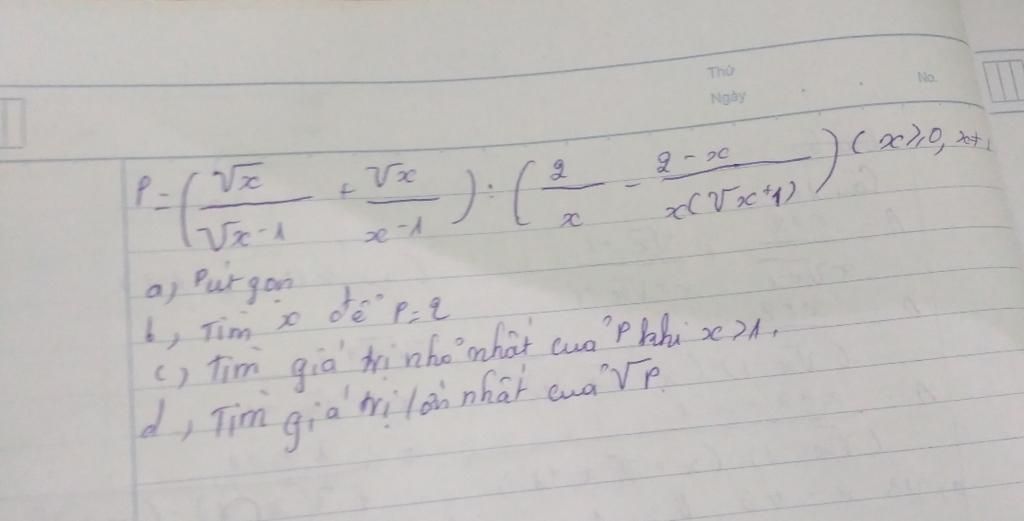 Thứ
No.
Ngày
P = (√x/(√x-1) + √x/(x-1)) : (2/x - (2-x)/(x(√x+1))) (x≥0, x≠1
a, Rút gọn
b, Tìm x để P=2
c, Tìm giá trị nhỏ nhất của P khi x>1.
d, Tìm giá trị lớn nhất của √P.